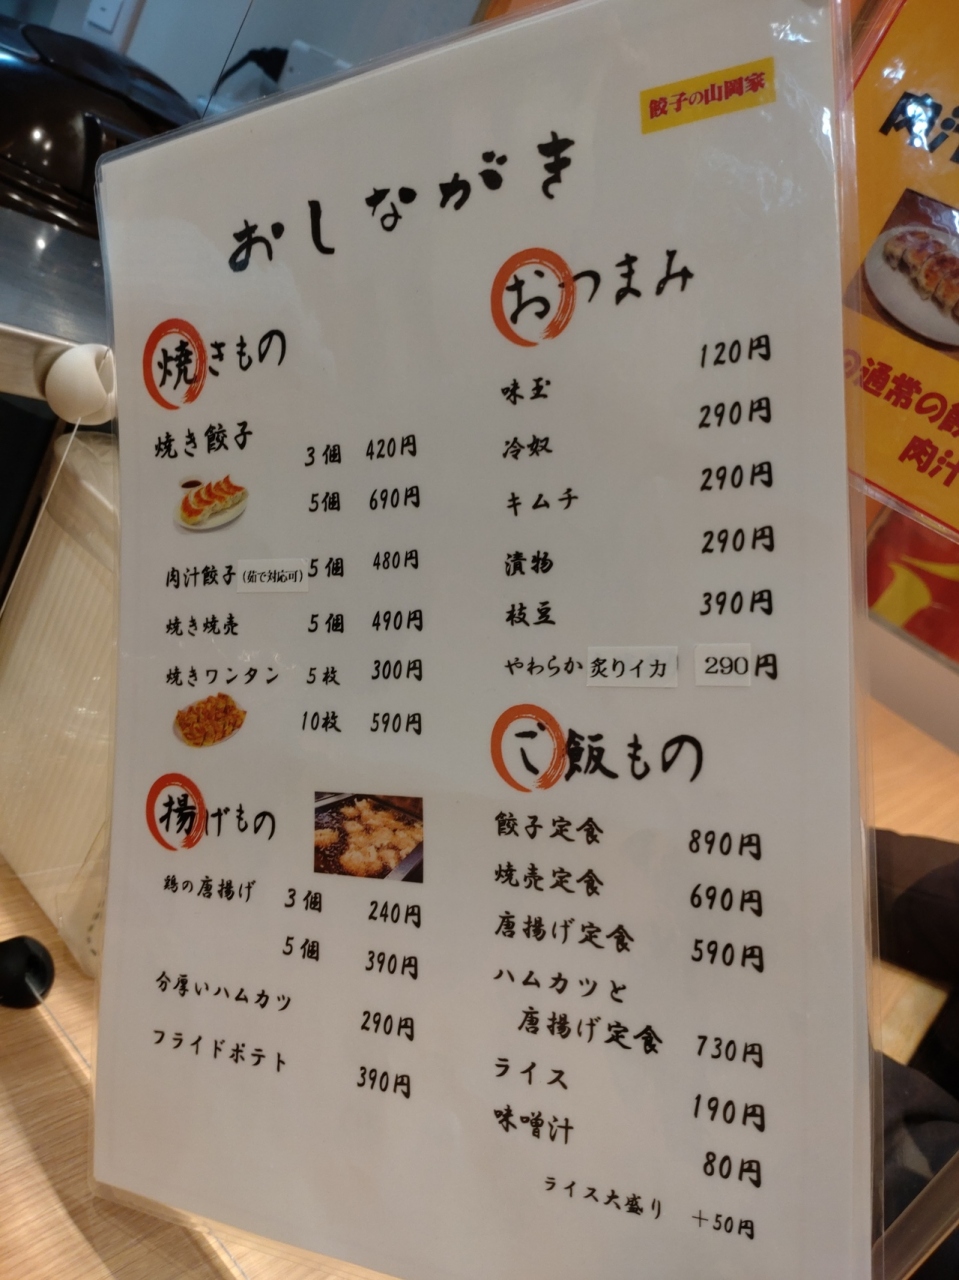 餃子の山岡家
おしながき
焼きもの
焼き餃子 3個 420円
5個 690円
肉汁餃子(茹で対応可) 5個 480円
焼き焼売 5個 490円
焼きワンタン 5枚 300円
10枚 590円
揚げもの
鶏の唐揚げ 3個 240円
5個 390円
分厚いハムカツ 290円
フライドポテト 390円
おつまみ
味玉 120円
冷奴 290円
キムチ 290円
漬物 290円
枝豆 390円
やわらか炙りイカ 290円
ご飯もの
餃子定食 890円
焼売定食 690円
唐揚げ定食 590円
ハムカツと
唐揚げ定食 730円
ライス 190円
味噌汁 80円
ライス大盛り +50円
肉汁
の通常の
肉汁